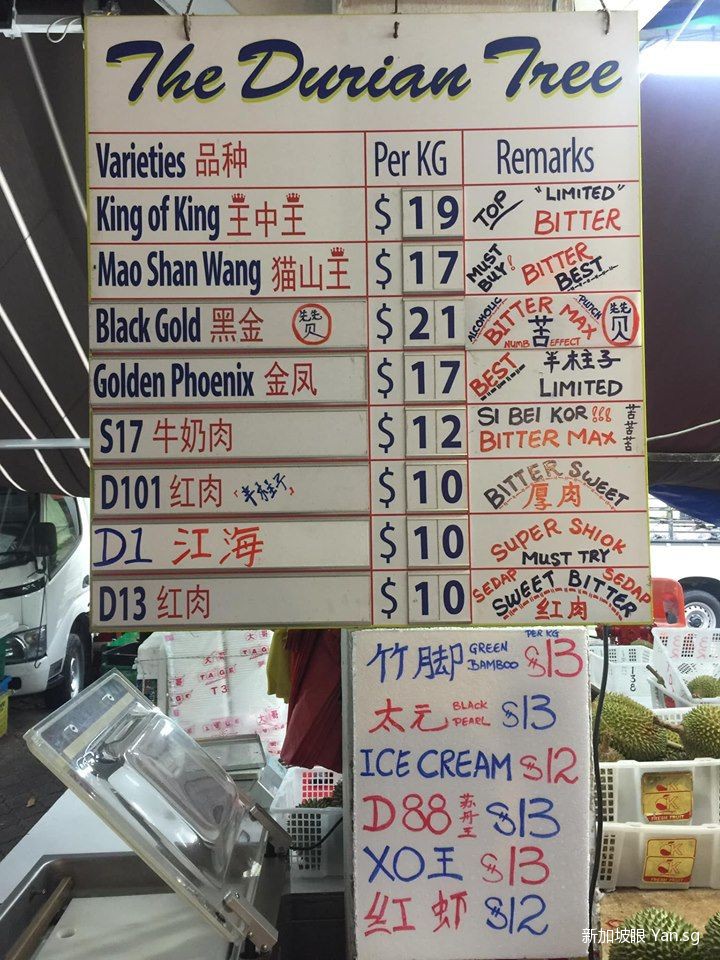 The Durian Tree
Varieties 品种 Per KG Remarks
King of King 王中王 $ 19 TOP "LIMITED" BITTER
Mao Shan Wang 猫山王 $ 17 MUST BUY! BITTER BEST
Black Gold 黑金 $ 21 ALCOHOLIC BITTER MAX PUNCH 苦 NUMB EFFECT
Golden Phoenix 金凤 $ 17 BEST 羊柱子 LIMITED
S17 牛奶肉 $ 12 SI BEI KOR!!! BITTER MAX 苦苦苦
D101 红肉 "羊柱子" $ 10 BITTER SWEET 厚肉
D1 江海 $ 10 SUPER SHIOK MUST TRY
D13 红肉 $ 10 SEDAP SWEET BITTER SEDAP 红肉
PER KG
竹脚 GREEN BAMBOO $13
太元 BLACK PEARL $13
ICE CREAM $12
D88 苏丹王 $13
XO王 $13
红虾 $12
大哥
TAGE
T3
138
SK
FRESH FRUIT
SK
FRESH FRUIT
新加坡眼 Yan.sg